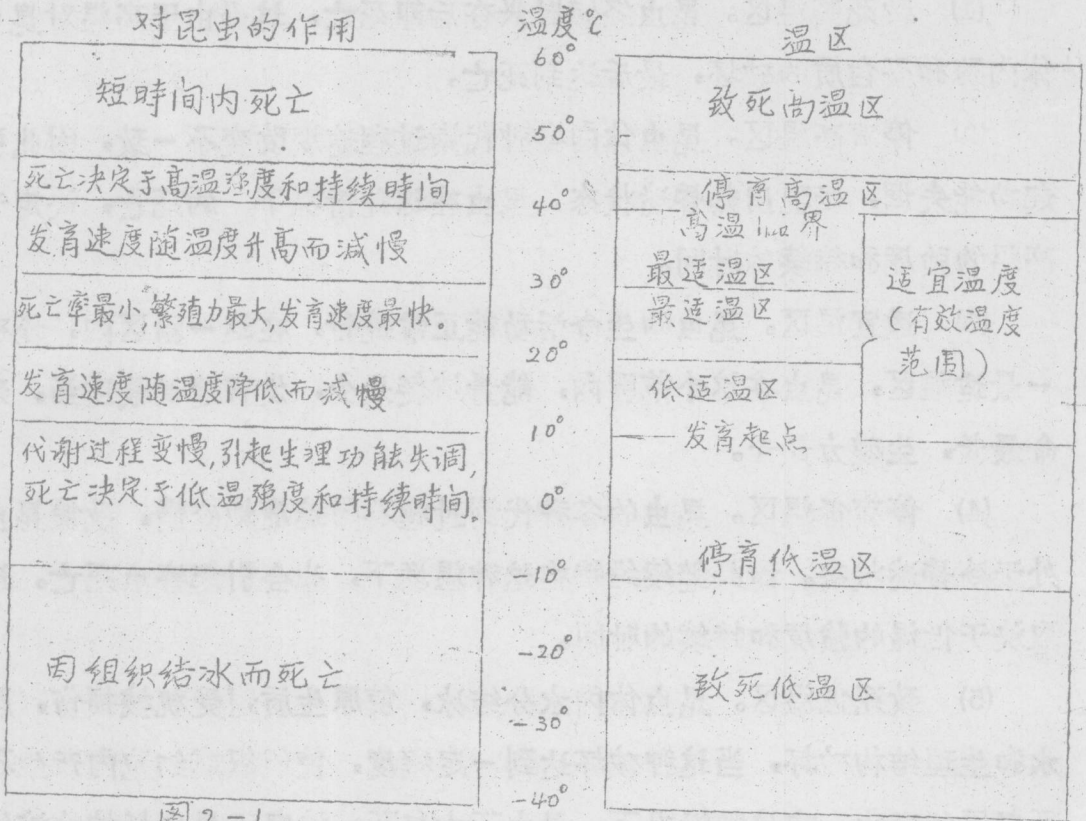 对昆虫的作用
短時间内死亡
死亡决定于高温强度和持续时间
发育速度随温度升高而減慢
死亡率最小,繁殖力最大,发育速度最快。
发育速度随温度降低而減慢
代谢过程变慢,引起生理功能失调,
死亡决定于低温强度和持续時间。
因组织结冰而死亡
图2-1
温度℃
60°
50°
40°
30°
20°
10°
0°
-10°
-20°
-30°
-40°
温区
致死高温区
停育高温区
高温临界
最适温区
最适温区
低适温区
发育起点
停育低温区
致死低温区
适宜温度
(有效温度
范围)